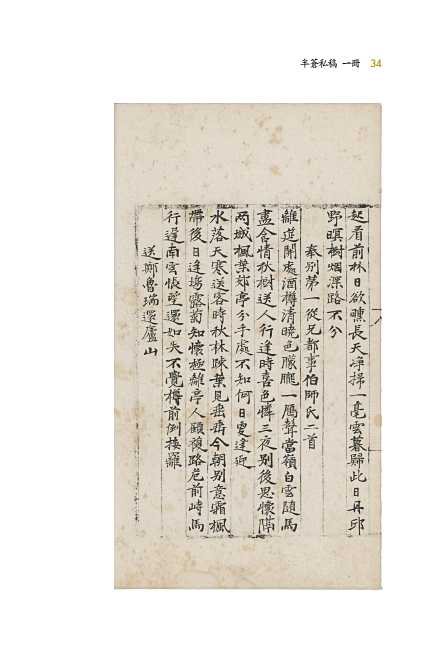 半蒼私稿 一冊 34
起看前林日欲曛長天淨掃一毫雲暮歸此日丹邱
野暝樹烟深路不分
奉別第一從兄都事伯師氏二首
離筵開處酒樽清曉色朦朧一鴈聲當嶺白雲隨馬
盡含情秋樹送人行逢時喜色憐三夜別後思懷隔
兩城楓葉郊亭分手處不知何日更逢迎
水落天寒送客時秋林疎葉見垂垂今朝別意霜楓
帶後日逢場露菊知懷極離亭人頋復路危前峙馬
行遲南雲悵望還如失不覺樽前倒接籬
送鄭魯瑞還廬山